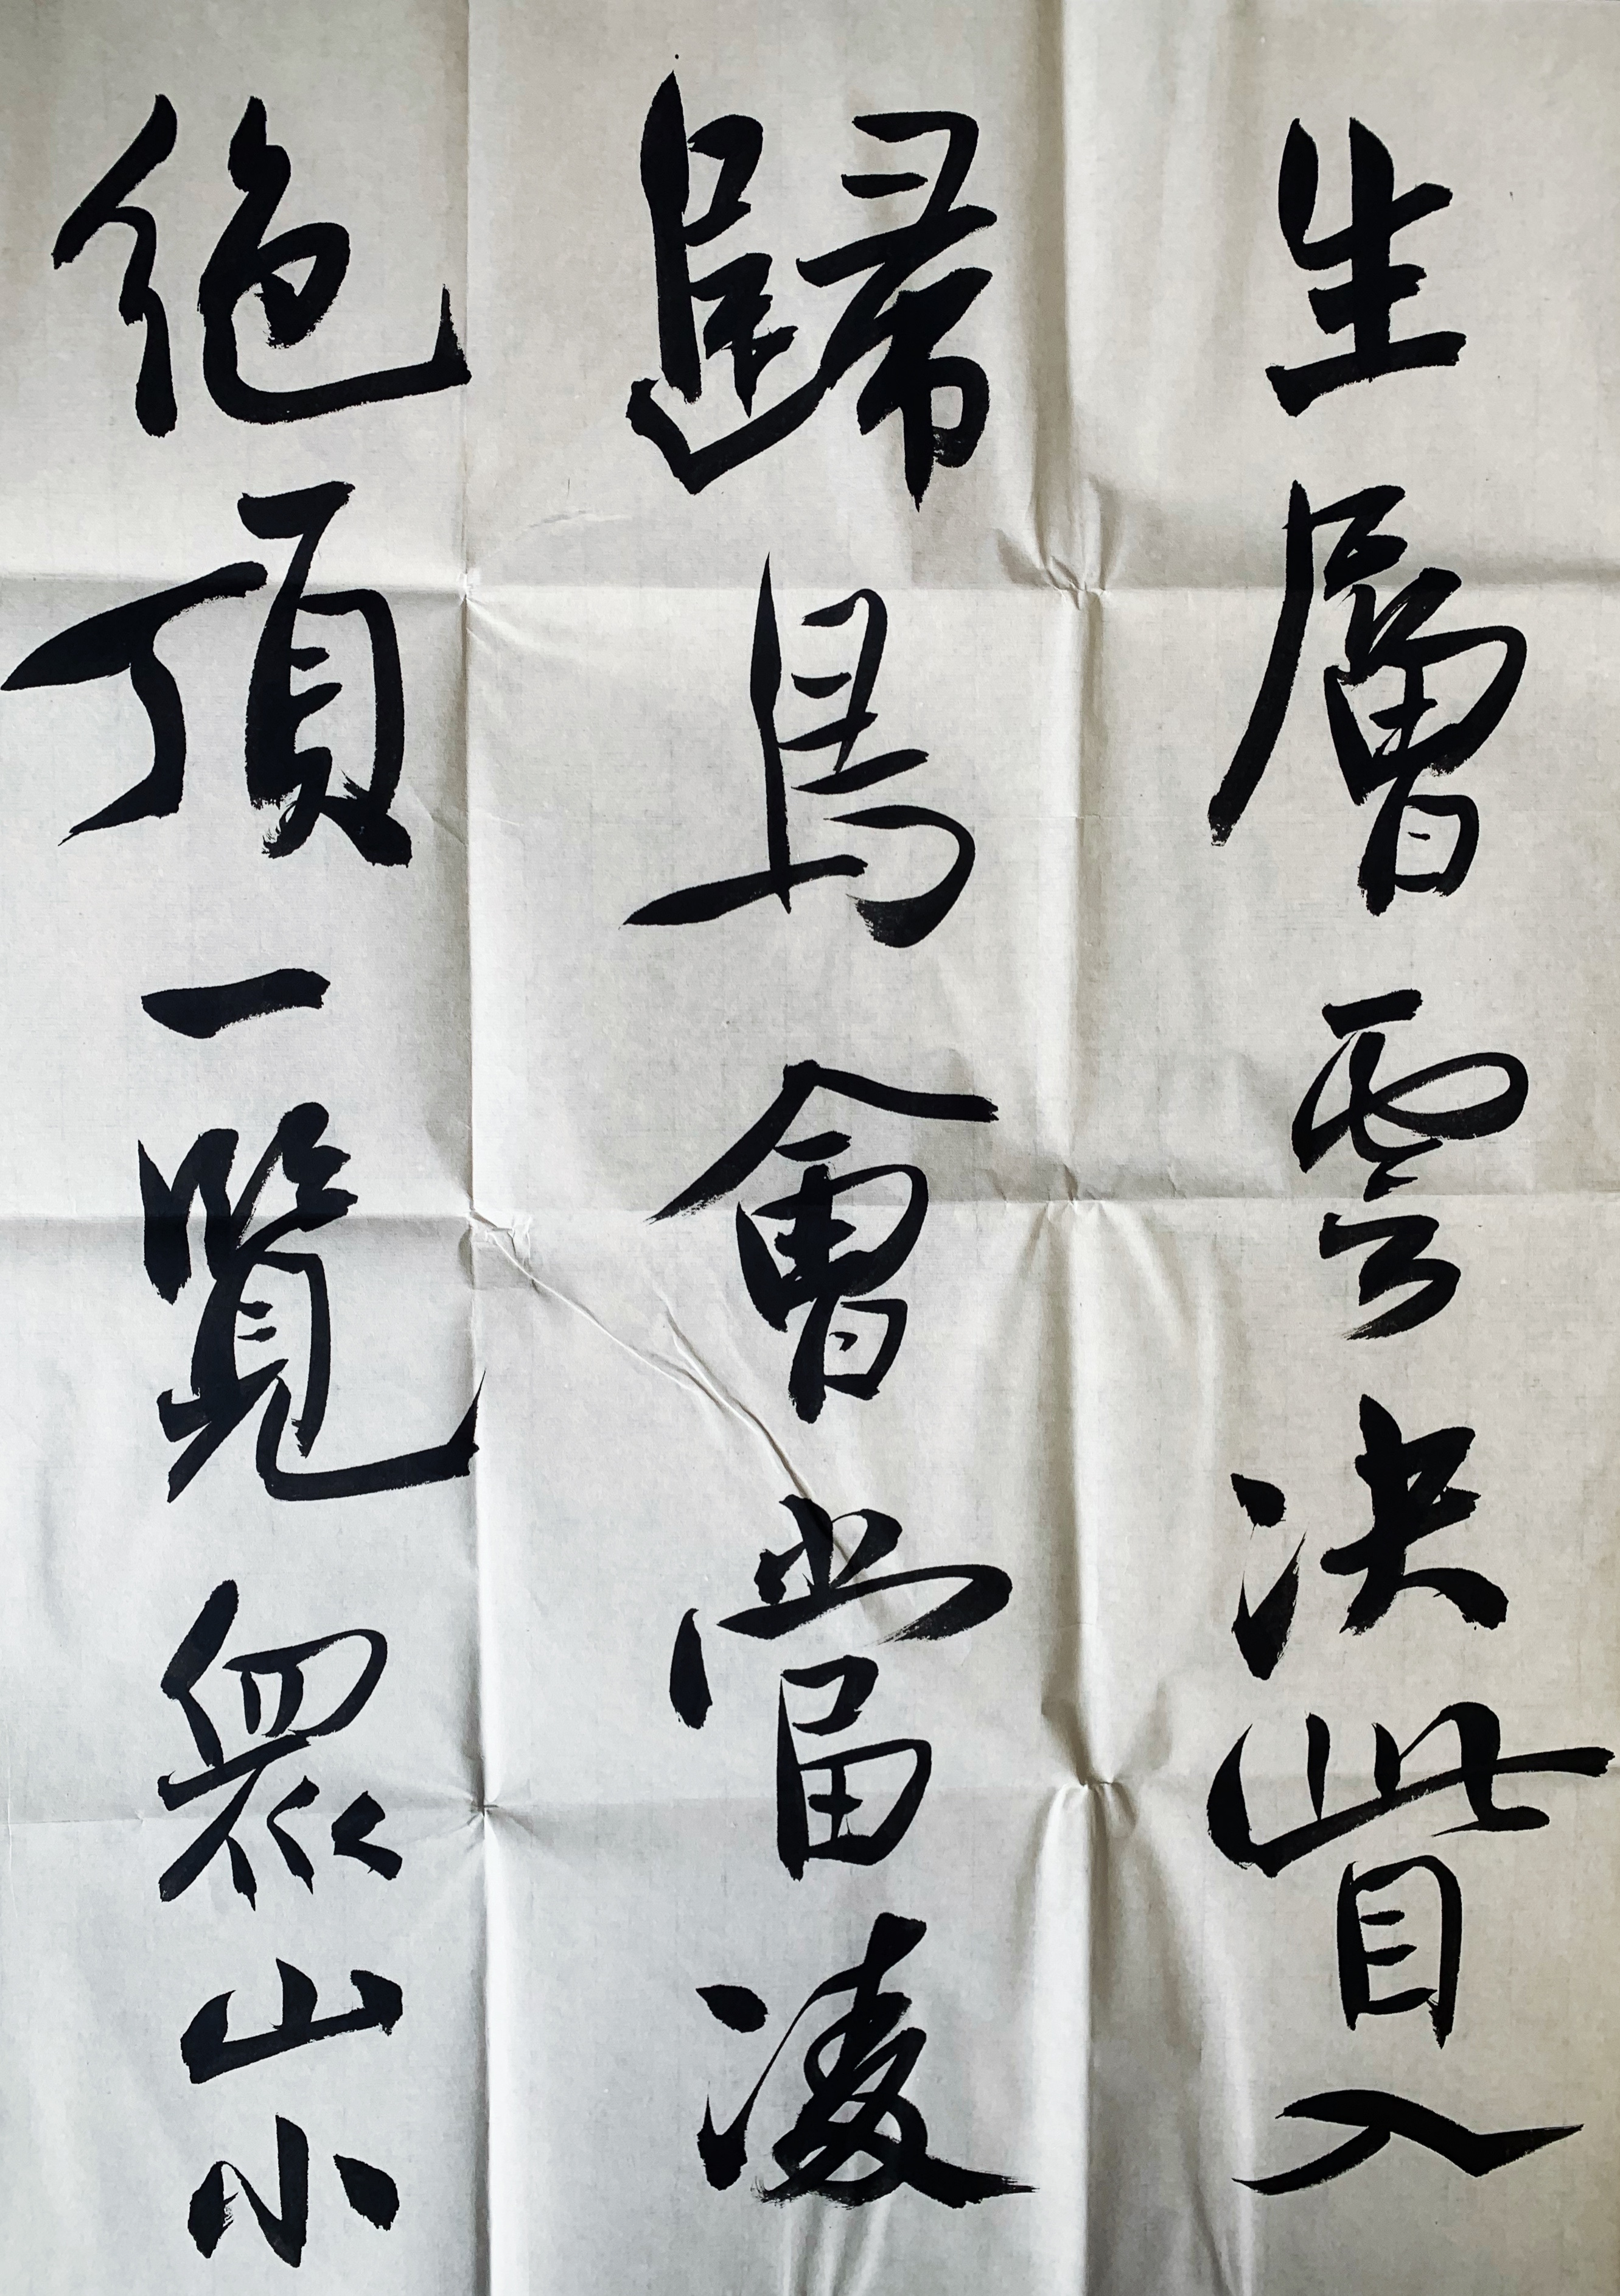 生層雲決眥入
歸鳥會當凌
絕頂一覽眾山小